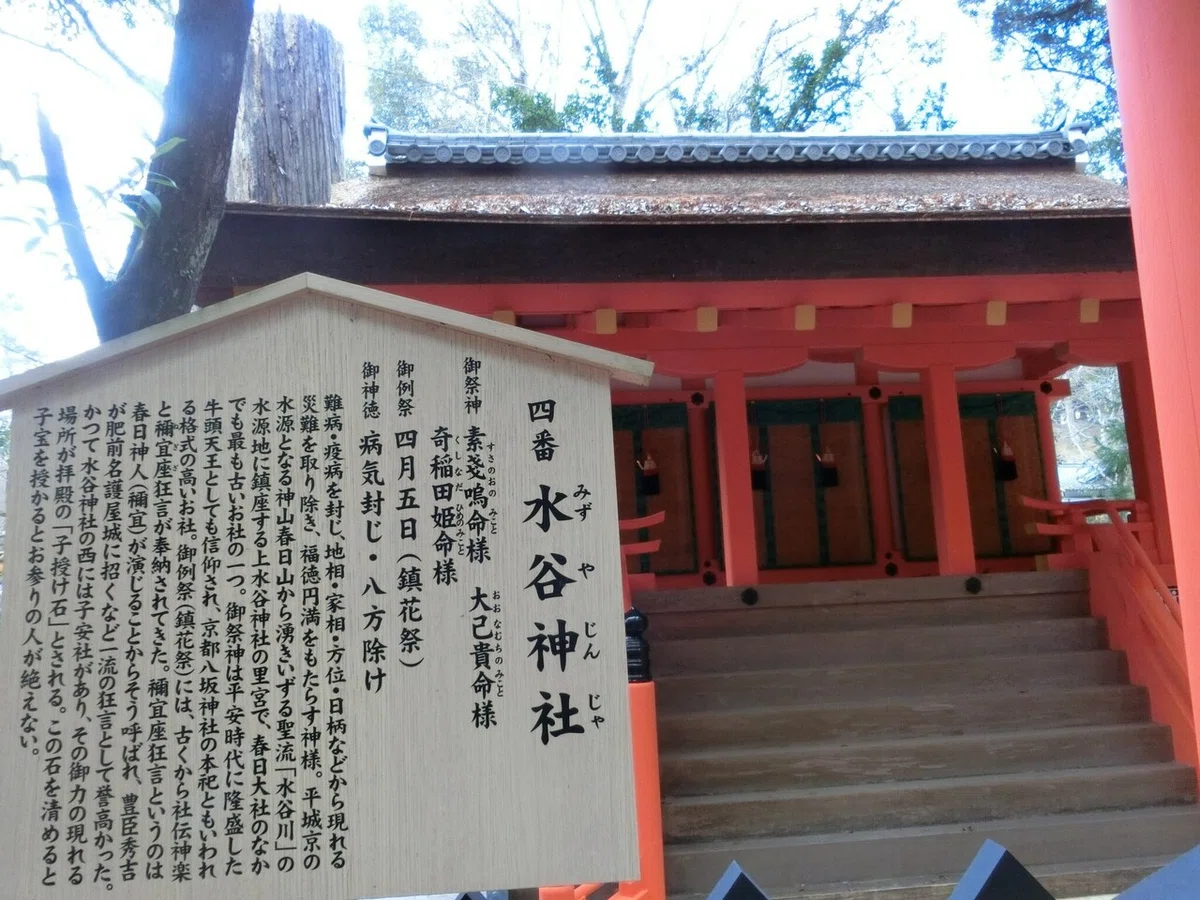 四番 水谷神社
みず や じん じゃ
御祭神 素戔嗚命様 大己貴命様
すさのおの みこと おおなむちのみこと
奇稲田姫命様
くしなだ ひめのみこと
御例祭 四月五日(鎮花祭)
御神徳 病気封じ・八方除け
難病・疫病を封じ、地相・家相・方位・日柄などから現れる
災難を取り除き、福徳円満をもたらす神様。平城京の
水源となる神山春日山から湧きいずる聖流「水谷川」の
水源地に鎮座する上水谷神社の里宮で、春日大社のなか
でも最も古いお社の一つ。御祭神は平安時代に隆盛した
牛頭天王としても信仰され、京都八坂神社の本祀ともいわれ
る格式の高いお社。御例祭(鎮花祭)には、古くから社伝神楽
と禰宜座狂言が奉納されてきた。禰宜座狂言というのは
春日神人(禰宜)が演じることからそう呼ばれ、豊臣秀吉
が肥前名護屋城に招くなど一流の狂言として誉高かった。
かつて水谷神社の西には子安社があり、その御力の現れる
場所が拝殿の「子授け石」とされる。この石を清めると
子宝を授かるとお参りの人が絶えない。